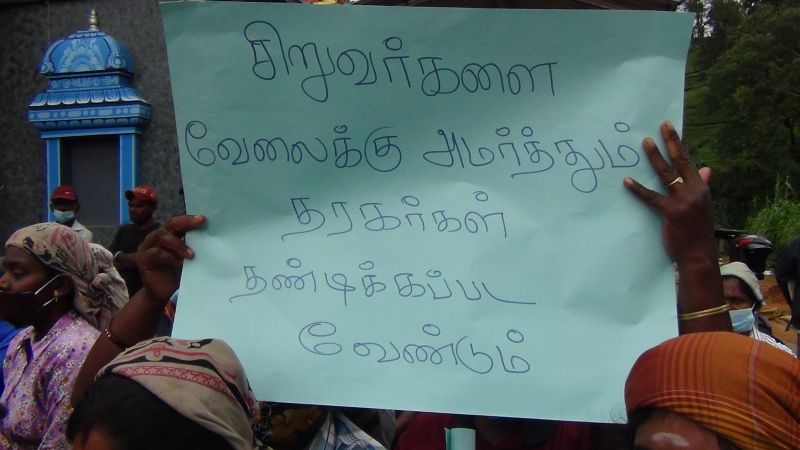 சிறுவர்களை
வேலைக்கு அமர்த்தும்
தரகர்கள்
தண்டிக்கப்பட
வேண்டும்